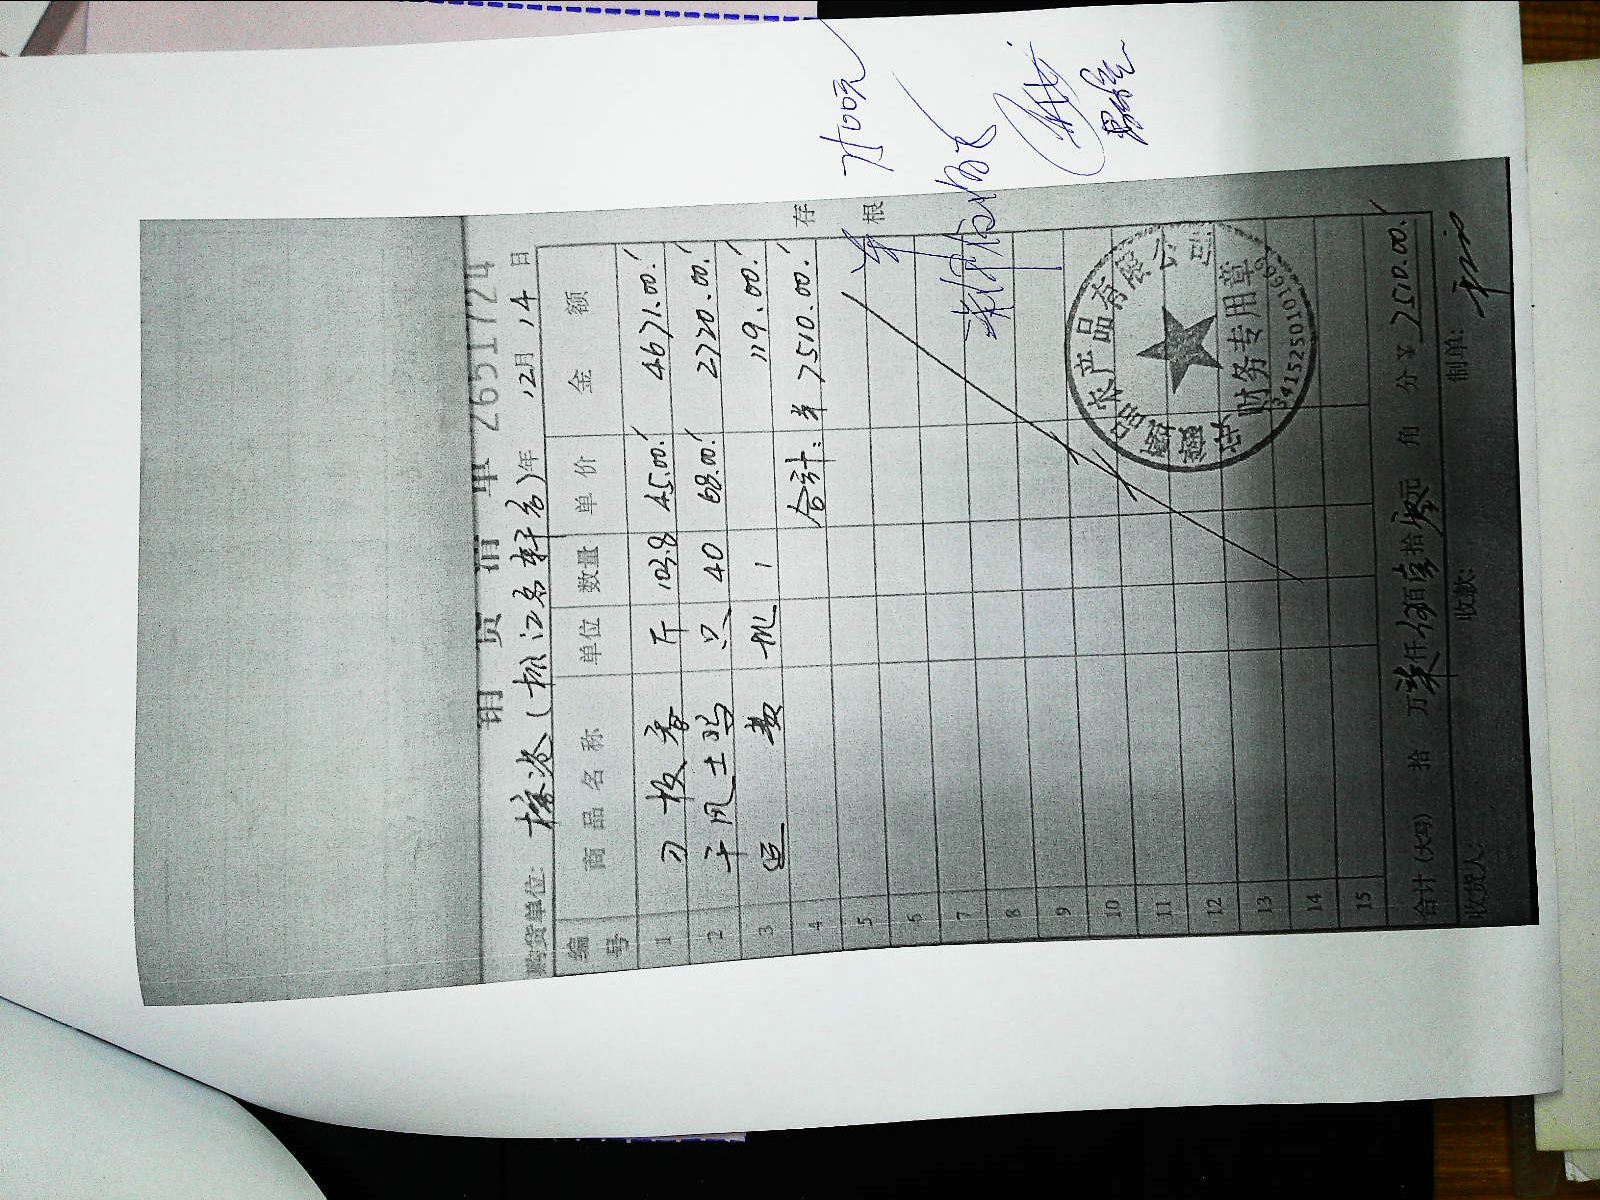 销货清单 2651724
购货单位: 年 12月 14日
编号 商品名称 单位 数量 单价 金额
1 刀板香 斤 103.8 45.00 4671.00
2 干风土鸡 只 40 68.00 2720.00
3 运费 批 1 119.00
4 合计: ¥7510.00
5
6
7
8
9
10
11
12
13
14
15
合计(大写) 拾 万柒仟伍佰壹拾零元 角 分 ¥7510.00
收货人: 收款: 制单:
存根
农产品有限公司
财务专用章